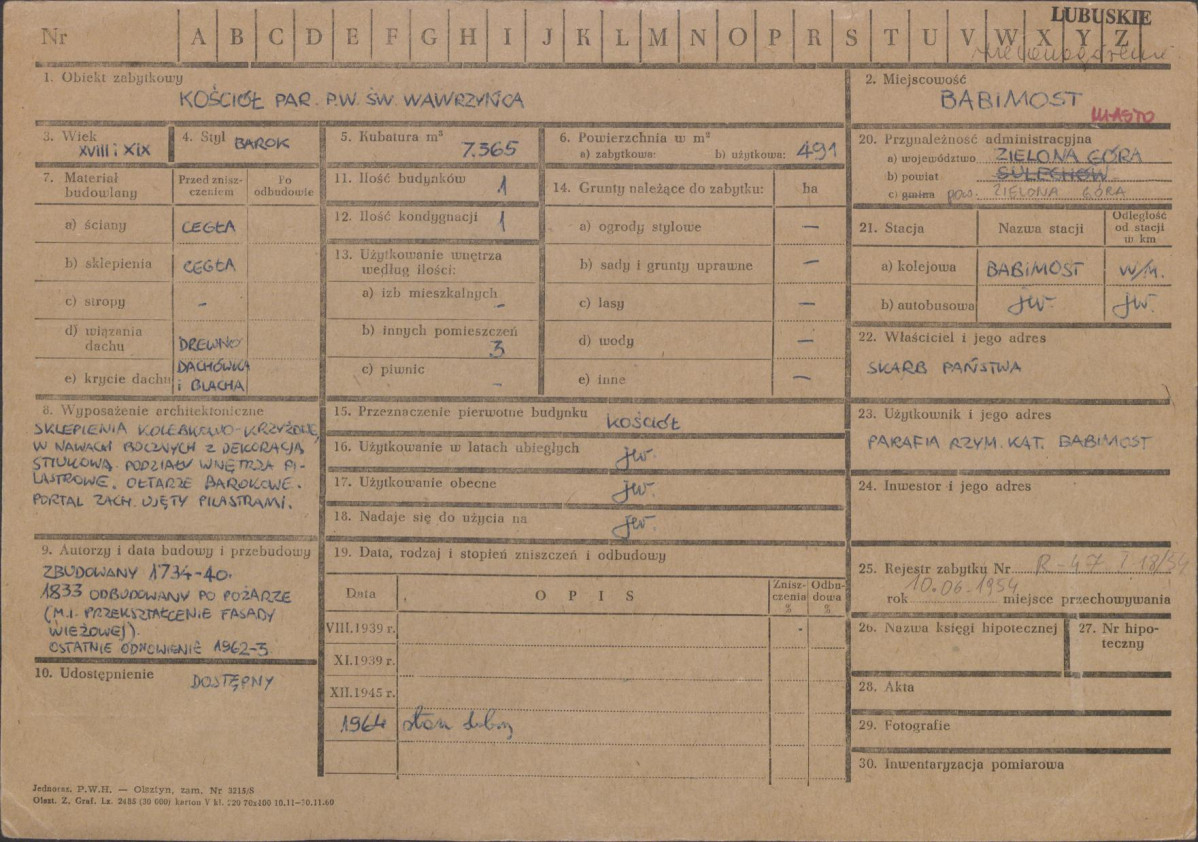 LUBUSKIE
Nr A B C D E F G H I J K L M N O P R S T U V W X Y Z
1. Obiekt zabytkowy
KOŚCIÓŁ PAR. P.W. ŚW. WAWRZYŃCA
2. Miejscowość
BABIMOST
MIASTO
3. Wiek
XVIII i XIX
4. Styl BAROK
5. Kubatura m³
7.365
6. Powierzchnia w m²
a) zabytkowa: b) użytkowa: 491
20. Przynależność administracyjna
a) województwo ZIELONA GÓRA
b) powiat SULECHÓW
c) gmina pow. ZIELONA GÓRA
7. Materiał budowlany
Przed zniszczeniem
Po odbudowie
a) ściany CEGŁA
b) sklepienia CEGŁA
c) stropy –
d) wiązania dachu DREWNO
e) krycie dachu DACHÓWKA i BLACHA
11. Ilość budynków 1
12. Ilość kondygnacji 1
13. Użytkowanie wnętrza według ilości:
a) izb mieszkalnych –
b) innych pomieszczeń 3
c) piwnic –
14. Grunty należące do zabytku: ha
a) ogrody stylowe –
b) sady i grunty uprawne –
c) lasy –
d) wody –
e) inne –
21. Stacja Nazwa stacji Odległość od stacji w km
a) kolejowa BABIMOST w/m.
b) autobusowa jw. jw.
22. Właściciel i jego adres
SKARB PAŃSTWA
8. Wyposażenie architektoniczne
SKLEPIENIA KOLEBKOWO-KRZYŻOWE,
W NAWACH BOCZNYCH Z DEKORACJĄ
STIUKOWĄ. PODZIAŁY WNĘTRZA PI-
LASTROWE. OŁTARZE BAROKOWE.
PORTAL ZACH. UJĘTY PILASTRAMI.
15. Przeznaczenie pierwotne budynku
KOŚCIÓŁ
16. Użytkowanie w latach ubiegłych jw.
17. Użytkowanie obecne jw.
18. Nadaje się do użycia na jw.
23. Użytkownik i jego adres
PARAFIA RZYM. KAT. BABIMOST
24. Inwestor i jego adres
9. Autorzy i data budowy i przebudowy
ZBUDOWANY 1734-40.
1833 ODBUDOWANY PO POŻARZE
(M.I. PRZEKSZTAŁCENIE FASADY
WIEŻOWEJ).
OSTATNIE ODNOWIENIE 1962-3.
10. Udostępnienie
DOSTĘPNY
19. Data, rodzaj i stopień zniszczeń i odbudowy
Data OPIS Zniszczenia % Odbudowa %
VIII.1939 r. -
XI.1939 r.
XII.1945 r.
1964 stan dobry
25. Rejestr zabytku Nr
rok 10.06.1954 miejsce przechowywania
26. Nazwa księgi hipotecznej
27. Nr hipoteczny
28. Akta
29. Fotografie
30. Inwentaryzacja pomiarowa
Jednoraz. P.W.H. — Olsztyn, zam. Nr 3215/S